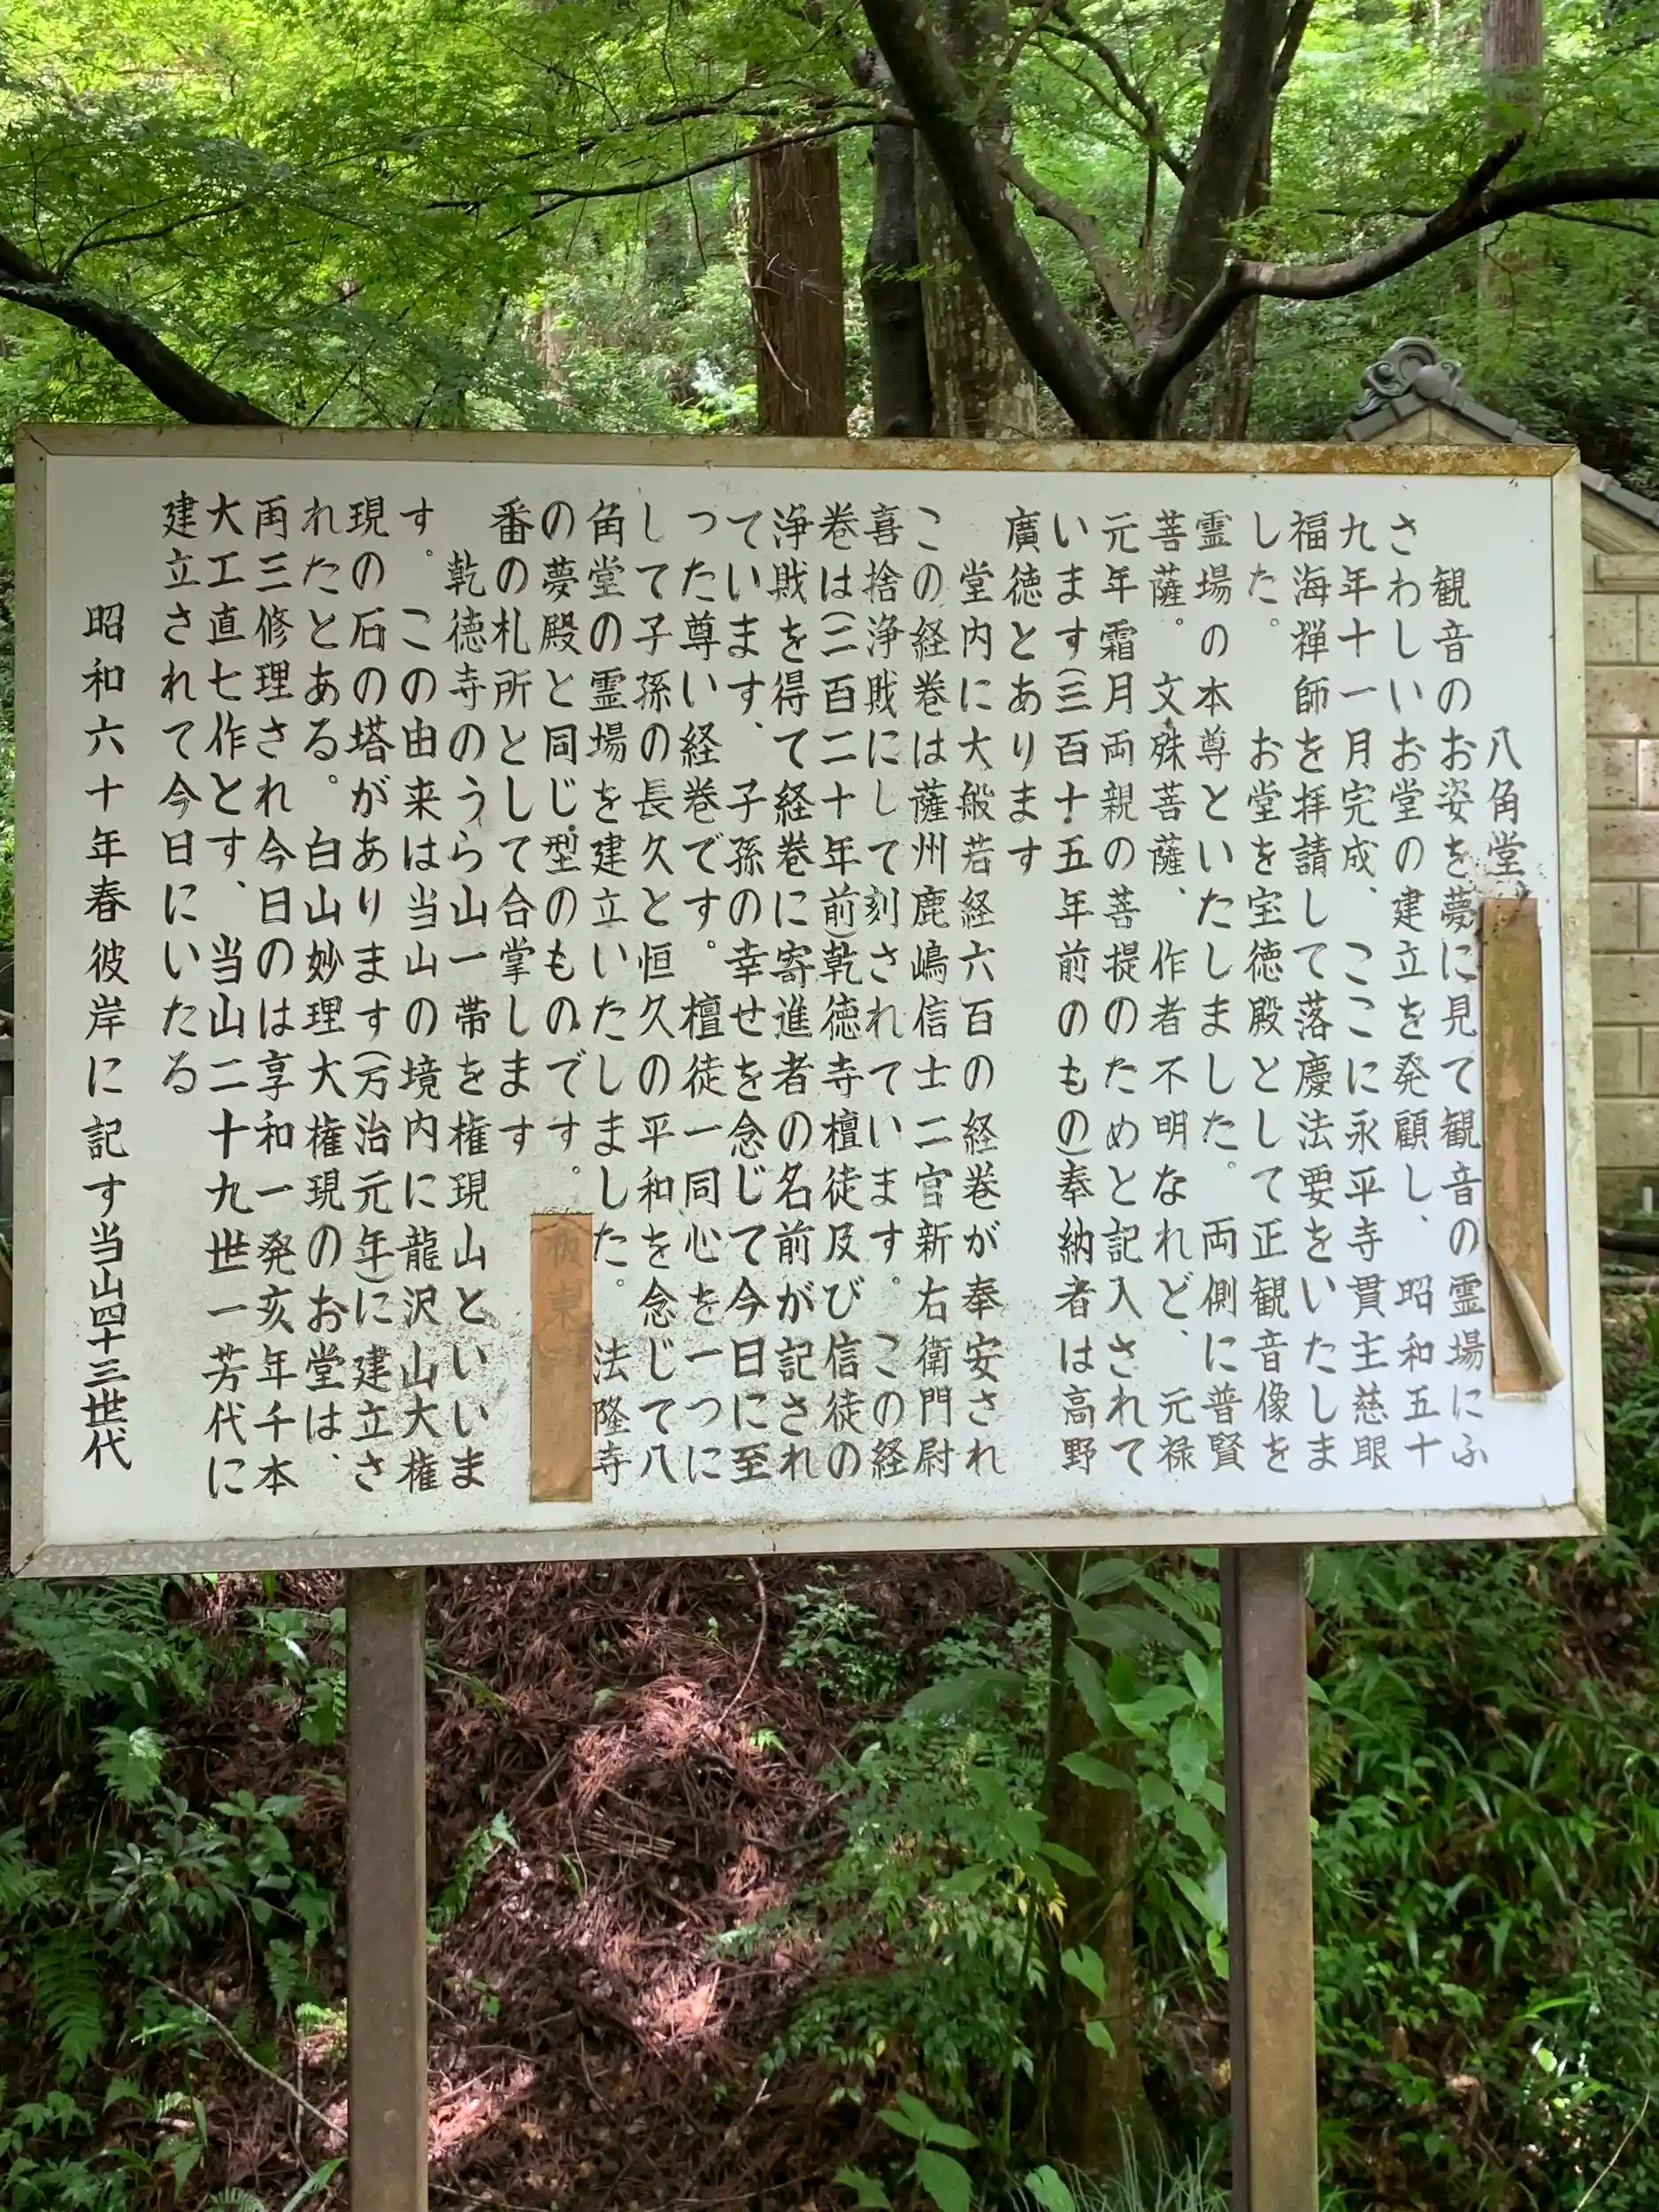 八角堂
観音のお姿を夢に見て観音の霊場にふ
さわしいお堂の建立を発願し、昭和五十
九年十一月完成、ここに永平寺貫主慈眼
福海禅師を拝請して落慶法要をいたしま
した。お堂を宝徳殿として正観音像を
霊場の本尊といたしました。両側に普賢
菩薩。文殊菩薩、作者不明なれど、元禄
元年霜月両親の菩提のためと記入されて
います(三百十五年前のもの)奉納者は高野
廣徳とあります
堂内に大般若経六百の経巻が奉安され
この経巻は薩州鹿嶋信士二官新右衛門尉
喜捨浄財にして刻されています。この経
巻は(二百二十年前)乾徳寺檀徒及び信徒の
浄財を得て経巻に寄進者の名前が記され
ています、子孫の幸せを念じて今日に至
った尊い経巻です。檀徒一同心を一つに
して子孫の長久と恒久の平和を念じて八
角堂の霊場を建立いたしました。法隆寺
の夢殿と同じ型のものです。
番の札所として合掌します
乾徳寺のうら山一帯を権現山といいま
す。この由来は当山の境内に龍沢山大権
現の石の塔があります(万治元年)に建立さ
れたとある。白山妙理大権現のお堂は、
両三修理され今日のは享和一発亥年千本
大工直七作とす、当山二十九世一芳代に
建立されて今日にいたる
昭和六十年春彼岸に記す当山四十三世代